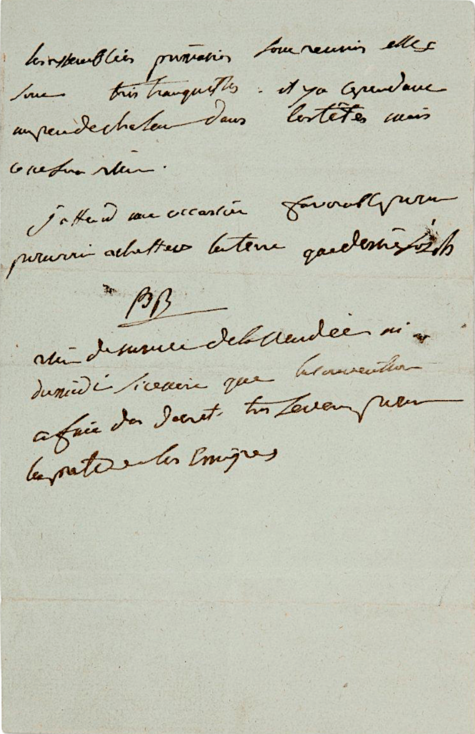 les assemblées primaires sont reunis elles
sont très tranquilles. il y a cependant
un peu de chaleur dans les têtes mais
ce ne sera rien.
j'attend une occasion favorable pour
pouvoir achetter la terre que desire
BB
rien de nouveau de la Vendée ni
du midi si ce n'est que la convention
a fait des decret très severes pour
les prêtres et les Emigrés